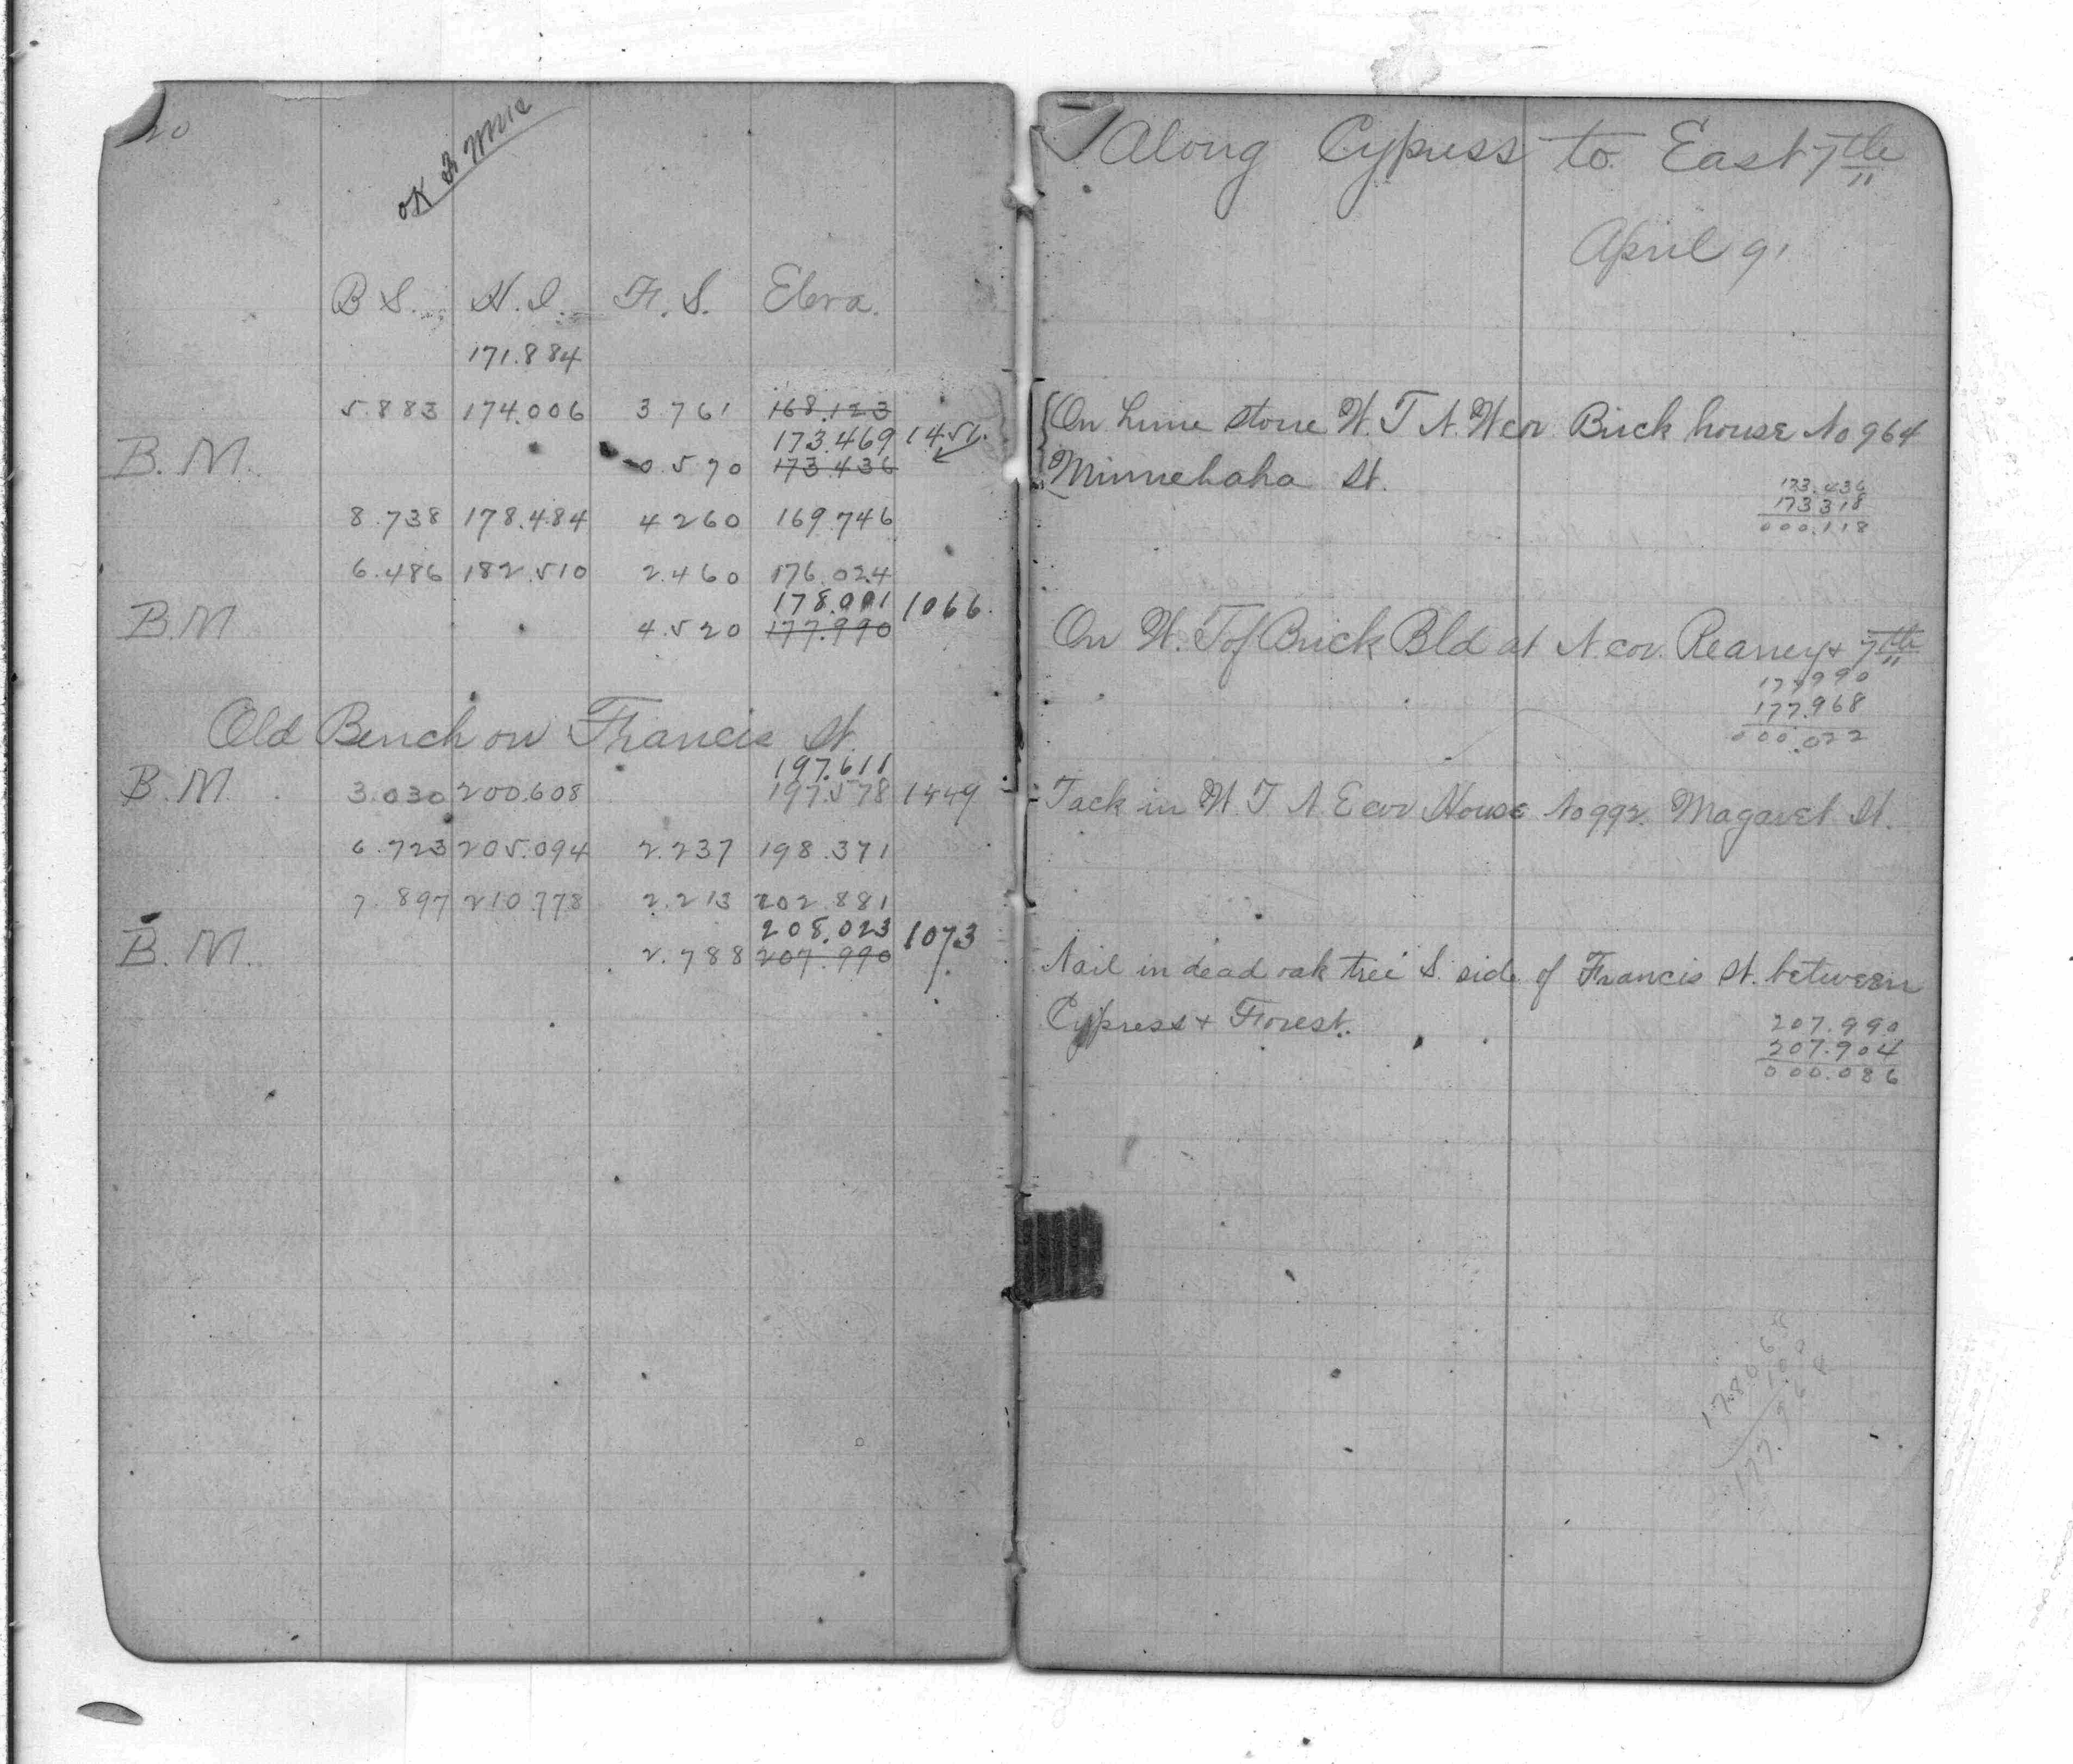 20
OK
B S. H. I. F. S. Eleva.
171.884
5.883 174.006 3.761 168.123
173.469 1451
B. M. 0.570 173.436
8.738 178.484 4260 169.746
6.486 182.510 2.460 176.024
178.001 1066
B.M 4.520 177.990
Old Bench on Francis St.
197.611
B. M. 3.030 200.608 197.578 1449
6.723 205.094 2.237 198.371
7.897 210.778 2.213 202.881
208.023 1073
B. M. 2.788 207.990
Along Cypress to East 7th
April 91
On Lime stone W. T N. W cor Brick house No 964
Minnehaha St.
173.436
173318
000.118
On W. T of Brick Bld at N. cor. Reaney + 7th
177990
177.968
000.022
Tack in W. T N. E cor House No 992. Magaret St.
Nail in dead oak tree S. side of Francis St. between
Cypress + Forest.
207.990
207.904
000.086
178.068
100
177.968